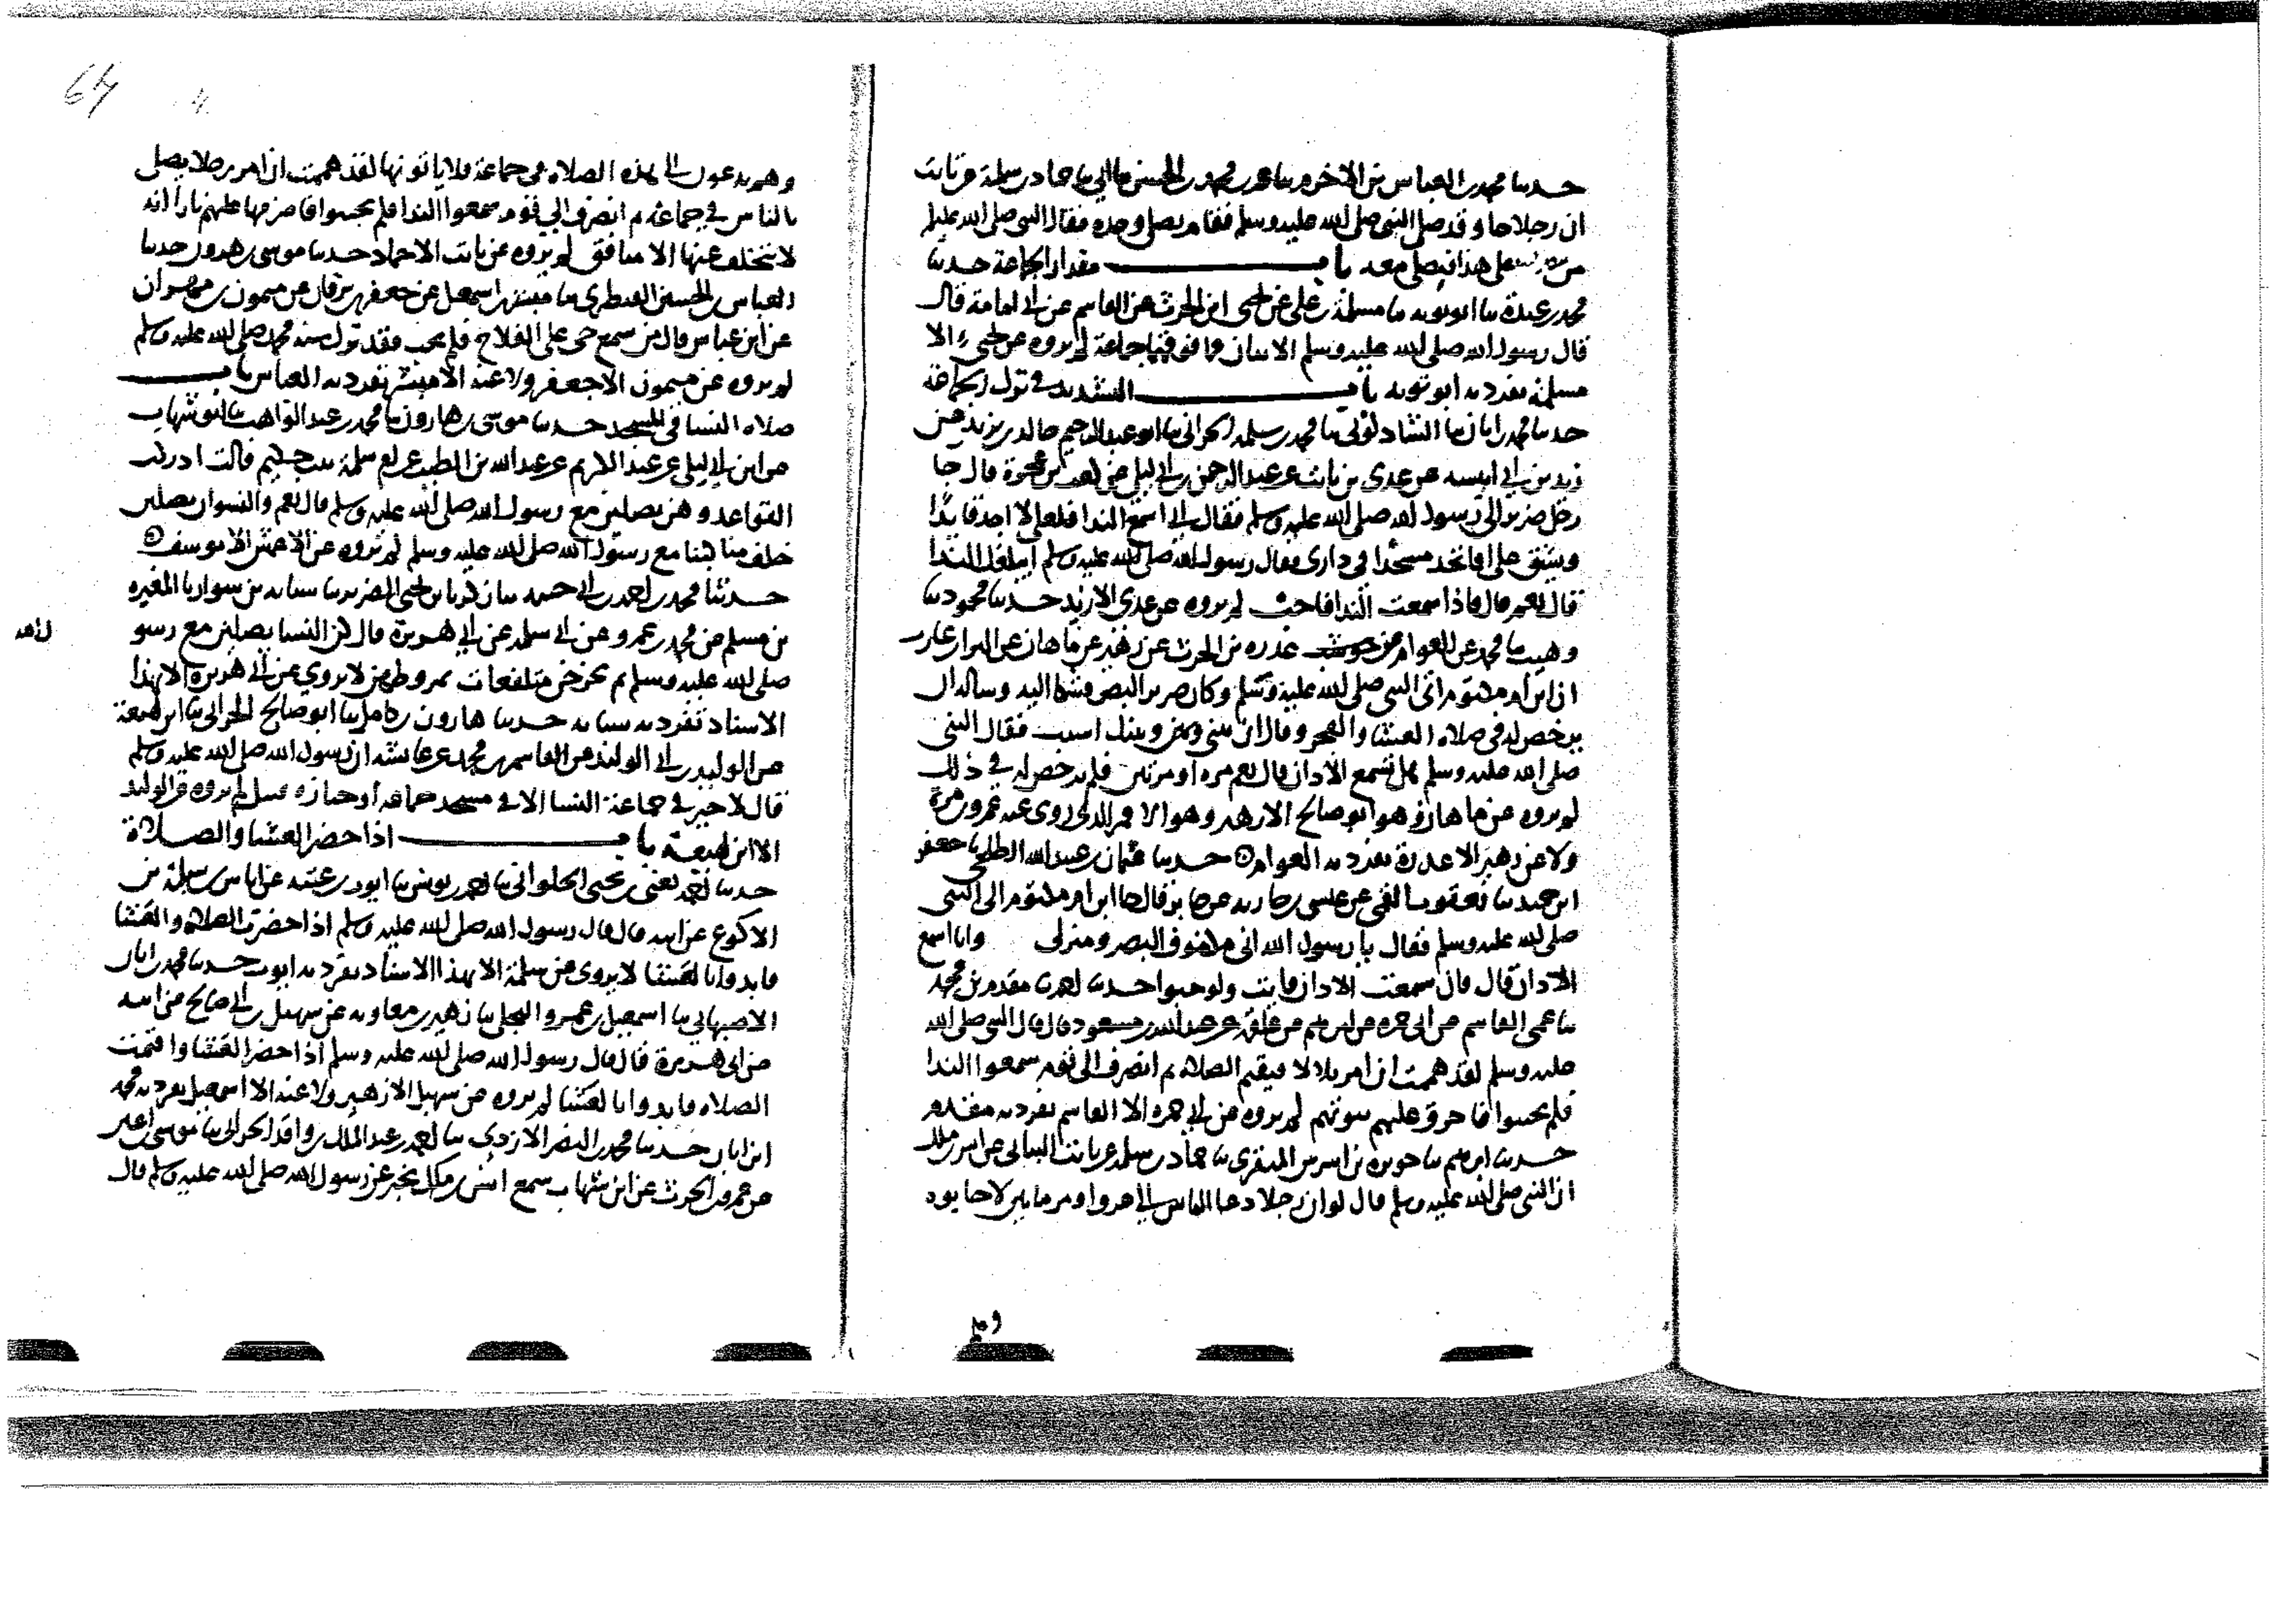 حدثنا محمد بن العباس بن الاخرم ثنا عمر بن محمد بن الحسن ثنا ابي ثنا حماد بن سلمة عن ثابت
ان رجلا جا وقد صلى النبي صلى الله عليه وسلم فقام يصلي وحده فقال النبي صلى الله عليه
من على هذا فيصلي معه باب مقدار الجماعة حدثنا
محمد بن عبدة ثنا ابو توبة ثنا مسلمة بن علي عن يحيى ابن الحرث عن القاسم عن ابي امامة قال
قال رسول الله صلى الله عليه وسلم الاثنان فما فوقهما جماعة لم يروه عن يحيى الا
مسلمة تفرد به ابو توبة باب التشديد في ترك الجماعة
حدثنا محمد بن ابان ثنا محمد بن سلمة الحراني ثنا ابو عبد الرحيم خالد بن يزيد عن
زيد بن ابي انيسة عن عدي بن ثابت عن عبد الرحمن بن ابي ليلى عن كعب بن عجرة قال جا
رجل ضرير الى رسول الله صلى الله عليه وسلم فقال اني اسمع الندا فلعلي لا اجد قائدا
ويشق علي افاتخذ مسجدا في داري فقال رسول الله صلى الله عليه وسلم ايبلغك الندا
قال نعم قال فاذا سمعت الندا فاجب لم يروه عن عدي الا زيد حدثنا محمود ثنا
وهب ثنا محمد عن العوام بن حوشب عذرة بن الحرث عن زهير عن ماهان عن البرا بن عازب
ان ابن ام مكتوم اتى النبي صلى الله عليه وسلم وكان ضرير البصر وشكا اليه وساله ان
يرخص له في صلاة العشا والفجر وقال ان بيني وبينك اشب فقال النبي
صلى الله عليه وسلم هل تسمع الاذان قال نعم مرة او مرتين فلم يرخص له في ذلك
لم يروه عن ماهان وهو ابو صالح الا زهير وهو الاقمر الذي روى عنه عمرو بن مرة
ولا عن زهير الا عذرة تفرد به العوام حدثنا عثمان بن عبيد الله الطلحي ثنا جعفر
ابن حميد ثنا يعقوب القمي عن عيسى بن جارية عن جابر قال جا ابن ام مكتوم الى النبي
صلى الله عليه وسلم فقال يا رسول الله اني مكفوف البصر ومنزلي وانا اسمع
الاذان قال فان سمعت الاذان فاجب ولو حبوا حدثنا احمد ثنا مقدم بن محمد
ثنا عمي القاسم عن ابي حمزة عن ابرهيم عن علقمة عن عبد الله بن مسعود قال قال النبي صلى الله
عليه وسلم لقد هممت ان امر بلالا فيقيم الصلاة ثم انصرف الى قوم سمعوا الندا
فلم يجيبوا فاحرق عليهم بيوتهم لم يروه عن ابي حمزة الا القاسم تفرد به مقدم
حدثنا ابرهيم ثنا حوثرة بن اشرس المنقري ثنا حماد بن سلمة عن ثابت البناني عن انس بن ملك
ان النبي صلى الله عليه وسلم قال لو ان رجلا دعا الناس الى عرق او مرماتين لاجابوه
وهم
64
وهم يدعون الى هذه الصلاة في جماعة فلا ياتونها لقد هممت ان امر رجلا يصلي
بالناس في جماعة ثم انصرف الى قوم سمعوا الندا فلم يجيبوا فاضرمها عليهم نارا انه
لا يتخلف عنها الا منافق لم يروه عن ثابت الا حماد حدثنا موسى بن هرون حدثنا
العباس بن الحسين القنطري ثنا مبشر بن اسمعيل عن جعفر بن برقان عن ميمون بن مهران
عن ابن عباس قال من سمع حي على الفلاح فلم يجب فقد ترك سنة محمد صلى الله عليه وسلم
لم يروه عن ميمون الا جعفر ولا عنه الا مبشر تفرد به العباس باب
صلاة النسا في المسجد حدثنا موسى بن هارون ثنا محمد بن عبد الواهب ثنا ابو شهاب
عن ابن ابي ليلى عن عبد الكريم عن عبد الله بن الطيب عن ام سلمة بنت حكيم قالت ادركت
القواعد وهن يصلين مع رسول الله صلى الله عليه وسلم قال نعم والنسوان يصلين
مع رسول الله صلى الله عليه وسلم لم يروه عن الاعمش الا يوسف
حدثنا محمد بن احمد بن ابي خيثمة ثنا زكريا بن يحيى الضرير ثنا شبابة بن سوار ثنا المغيرة
بن مسلم عن محمد بن عمرو عن ابي سلمة عن ابي هريرة قال كن النسا يصلين مع رسو
ل الله
صلى الله عليه وسلم ثم يخرجن متلفعات بمروطهن لا يروى عن ابي هريرة الا بهذا
الاسناد تفرد به شبابة حدثنا هارون بن كامل ثنا ابو صالح الحراني ثنا ابن لهيعة
عن الوليد بن ابي الوليد عن القاسم بن محمد عن عائشة ان رسول الله صلى الله عليه وسلم
قال لا خير في جماعة النسا الا في مسجد جماعة او جنازة لم يروه عن الوليد
الا ابن لهيعة باب اذا حضر العشا والصلاة
حدثنا احمد يعني بن يحيى الحلواني ثنا احمد بن يونس ثنا ايوب بن عتبة عن اياس بن سلمة بن
الاكوع عن ابيه قال قال رسول الله صلى الله عليه وسلم اذا حضرت الصلاة والعشا
فابدوا بالعشا لا يروى عن سلمة الا بهذا الاسناد تفرد به ايوب حدثنا محمد بن ابان
الاصبهاني ثنا اسمعيل بن عمرو البجلي ثنا زهير بن معاوية عن سهيل بن ابي صالح عن ابيه
عن ابي هريرة قال قال رسول الله صلى الله عليه وسلم اذا حضر العشا واقيمت
الصلاة فابدوا بالعشا لم يروه عن سهيل الا زهير ولا عنه الا اسمعيل تفرد به محمد
ابن ابان حدثنا محمد بن النضر الازدي ثنا احمد بن عبد الملك بن واقد الحراني ثنا موسى بن اعين
عن عمرو بن الحرث عن ابن شهاب سمع انس بن ملك يخبر عن رسول الله صلى الله عليه وسلم قال